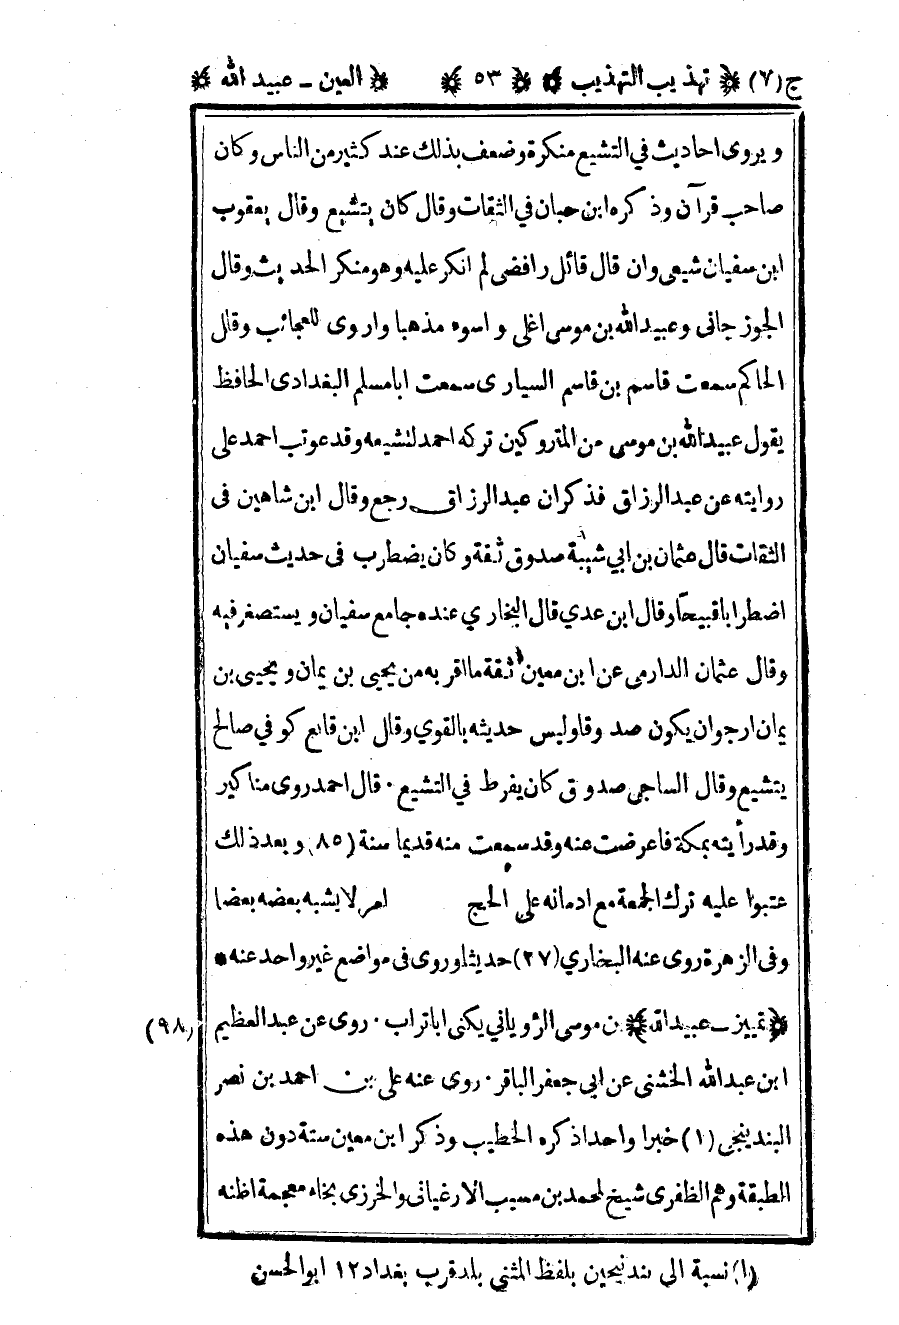 ج(٧) ﴿ تهذيب التهذيب ﴾ ﴿ ٥٣ ﴾ ﴿ العين ـ عبيد الله ﴾
ويروى احاديث في التشيع منكرة وضعف بذلك عند كثير من الناس وكان
صاحب قرآن وذكره ابن حبان في الثقات وقال كان يتشيع وقال يعقوب
ابن سفيان شيعى وان قال قائل رافضى لم انكر عليه وهو منكر الحديث وقال
الجوزجانى وعبيدالله بن موسى اغلى و اسوء مذهبا واروى للعجائب وقال
الحاكم سمعت قاسم بن قاسم السيارى سمعت ابا مسلم البغدادى الحافظ
يقول عبيدالله بن موسى من المتروكين تركه احمد لتشيعه وقد عوتب احمد على
روايته عن عبد الرزاق فذكر ان عبد الرزاق رجع وقال ابن شاهين فى
الثقات قال عثمان بن ابي شيبة صدوق ثقة وكان يضطرب فى حديث سفيان
اضطرابا قبيحًا وقال ابن عدي قال البخاري عنده جامع سفيان ويستصغر فيه
وقال عثمان الدارمى عن ابن معين ثقة ما اقر به من يحيى بن يمان و يحيى بن
يمان ارجوان يكون صدوقا وليس حديثه بالقوي وقال ابن قانع كوفي صالح
يتشيع وقال الساجى صدوق كان يفرط في التشيع ٠ قال احمد روى مناكير
وقد رأيته بمكة فاعرضت عنه وقد سمعت منه قديما سنة (٨٥) وبعد ذلك
عتبوا عليه ترك الجمعة مع ادمانه على الحج امر لا يشبه بعضه بعضا
وفى الزهرة روى عنه البخاري (٢٧) حديثا وروى فى مواضع غير واحد عنه *
﴿ تمييز ـ عبيد الله ﴾ بن موسى الرؤياني يكنى ابا تراب ٠ روى عن عبد العظيم (٩٨)
ابن عبدالله الخشنى عن ابي جعفر الباقر ٠ روى عنه على بن احمد بن نصر
البندينجى (١) خبرا واحدا ذكره الخطيب وذكر ابن معين ستة دون هذه
الطبقة وهم الظفرى شيخ لمحمد بن مسيب الارغيانى والخرزى بخاء معجمة اظنه
(١) نسبة الى بندنيجين بلفظ المثنى بلد قرب بغداد ١٢ ابوالحسن